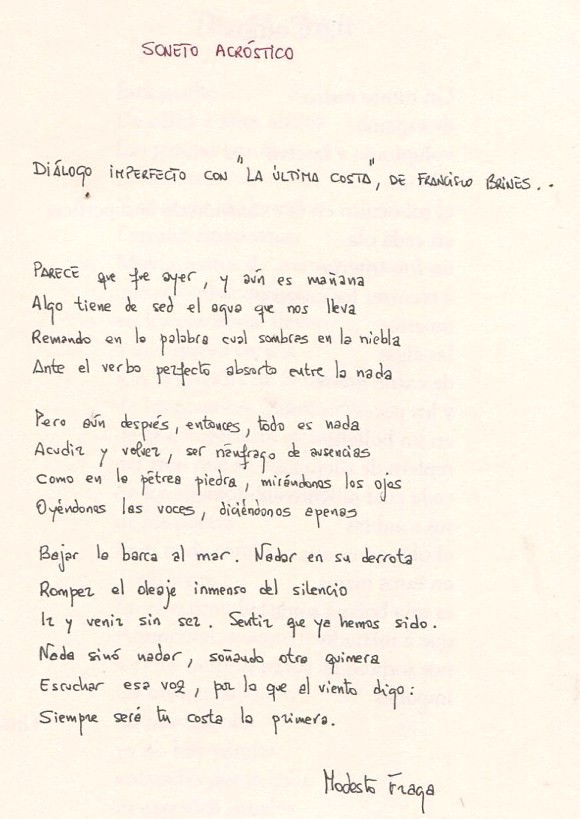 SONETO ACRÓSTICO
DIÁLOGO IMPERFECTO CON "LA ÚLTIMA COSTA", DE FRANCISCO BRINES..
PARECE que fue ayer, y aún es mañana
Algo tiene de sed el agua que nos lleva
Remando en la palabra cual sombras en la niebla
Ante el verbo perfecto absorto entre la nada
Pero aún después, entonces, todo es nada
Acudir y volver, ser náufrago de ausencias
Como en la pétrea piedra, mirándonos los ojos
Oyéndonos las voces, diciéndonos apenas
Bajar la barca al mar. Nadar en su derrota
Romper el oleaje inmenso del silencio
Ir y venir sin ser. Sentir que ya hemos sido.
Nada sinó nadar, soñando otra quimera
Escuchar esa voz, por la que el viento diga:
Siempre seré tu costa la primera.
Modesto Fraga